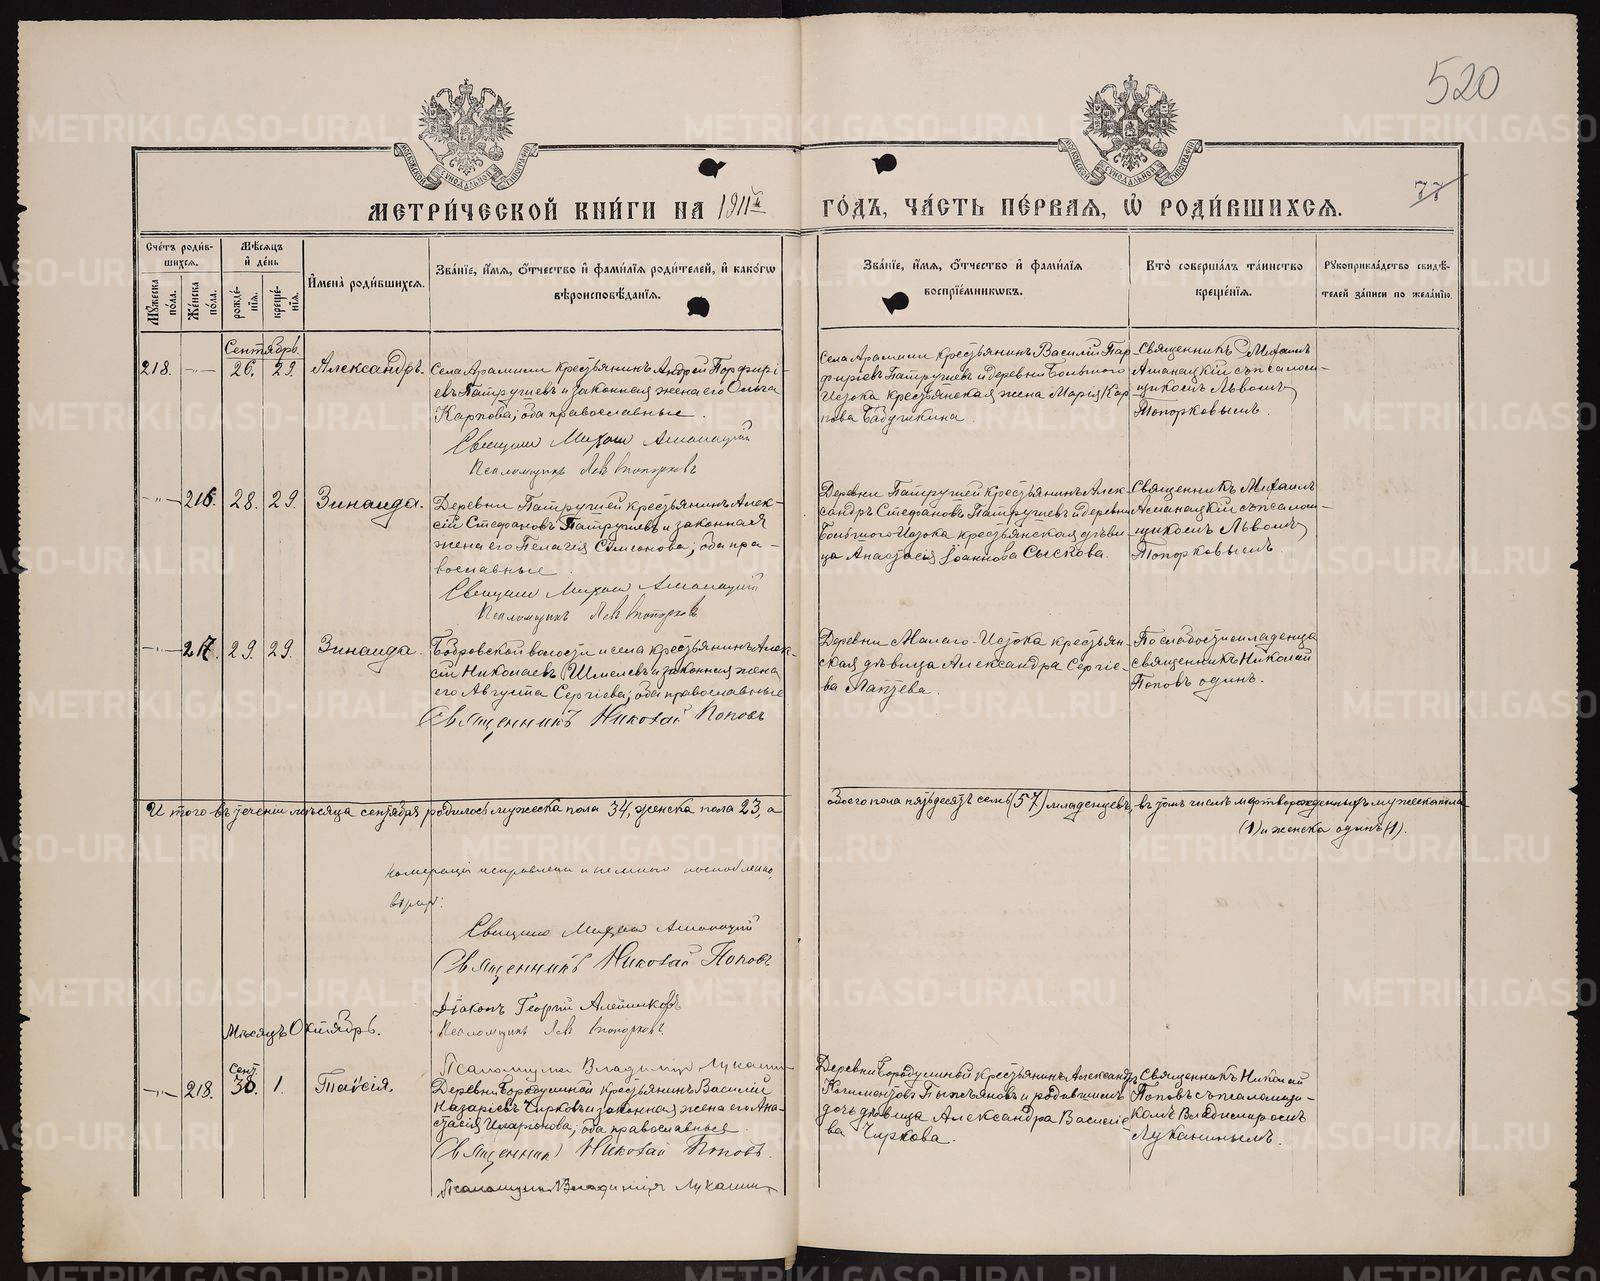 520
77
МОСКОВСКОЙ СѴНОДАЛЬНОЙ ТИПОГРАФІИ
МОСКОВСКОЙ СѴНОДАЛЬНОЙ ТИПОГРАФІИ
МЕТРИ́ЧЕСКОЙ КНИ́ГИ НА 1911й ГО́ДЪ, ЧА́СТЬ ПЕ́РВАЯ, Ѡ҆ РОДИ́ВШИХСЯ.
Сче́тъ роди́в-
шихся.
Мѣ́сяцъ
и҆ де́нь
И҆мена̀ роди́вшихся.
Зва́нїе, и҆́мя, о҆́тчество и҆ фами́лїя роди́телей, и҆ како́гѡ
вѣроисповѣ́данїя.
Зва́нїе, и҆́мя, о҆́тчество и҆ фами́лїя
воспрїе́мникѡвъ.
Кто̀ соверша́лъ та́инство
креще́нїя.
Рꙋкоприкла́дство свидѣ́-
телей за́писи по жела́нїю.
Мꙋ́жеска
по́ла.
Же́нска
по́ла.
рожде́-
нїя.
креще́-
нїя.
Сентябрь.
218. —"— 26. 29. Александръ.
Села Арамили крестьянинъ Андрей Порфирі-
евъ Патрушевъ и законная жена его Ольга
Карпова; оба православные.
Священникъ Михаилъ
Псаломщикъ Левъ Топорковъ
Села Арамили крестьянинъ Василій Пор-
фиріевъ Патрушевъ и деревни Большого
Истока крестьянская жена Марія Кар
пова Бабушкина.
Священникъ Михаилъ
съ псалом-
щикомъ Львомъ
Топорковымъ.
—"— 216. 28. 29. Зинаида.
Деревни Патрушей крестьянинъ Алек-
сій Стефановъ Патрушевъ и законная
жена его Пелагія Симеонова; оба пра-
вославные.
Священникъ Михаилъ
Псаломщикъ Левъ Топорковъ
Деревни Патрушей крестьянинъ Алек-
сандръ Стефановъ Патрушевъ и деревни
Большого Истока крестьянская дѣви-
ца Анастасія Іоаннова Сыскова.
Священникъ Михаилъ
съ псалом-
щикомъ Львомъ
Топорковымъ.
—"— 217. 29. 29. Зинаида.
Бобровской волости и села крестьянинъ Алек-
сій Николаевъ Шмелевъ и законная жена
его Августа Сергіева; оба православные
Священникъ Николай Поповъ
Деревни Малаго-Истока крестьян-
ская дѣвица Александра Сергіе-
ва Лаптева.
По слабости младенца
священникъ Николай
Поповъ одинъ.
И того въ теченіи мѣсяца сентября родилось мужеска пола 34, женска пола 23, а
обоего пола пятьдесятъ семь (57) младенцевъ, въ томъ числѣ мертворожденныхъ мужеска пола
(1) и женска одинъ (1).
Священникъ Михаилъ
Священникъ Николай Поповъ
Діаконъ Георгій
Псаломщикъ Левъ Топорковъ
Псаломщикъ Владимиръ Луканинъ
Мѣсяцъ Октябрь.
Сент.
—"— 218. 30. 1. Таисія.
Деревни Бородулиной крестьянинъ Василій
Назаріевъ Чирковъ и законная жена его Ана-
стасія Иларіонова; оба православные.
Священникъ Николай Поповъ.
Псаломщикъ Владимиръ Луканинъ
Деревни Бородулиной крестьянинъ Александръ
Климентовъ Пьянъ и родившимъ
дочь дѣвица Александра Василіе-
ва Чиркова.
Священникъ Николай
Поповъ съ псаломщи-
комъ Владимиромъ
Луканинымъ.
METRIKI.GASO-URAL.RU